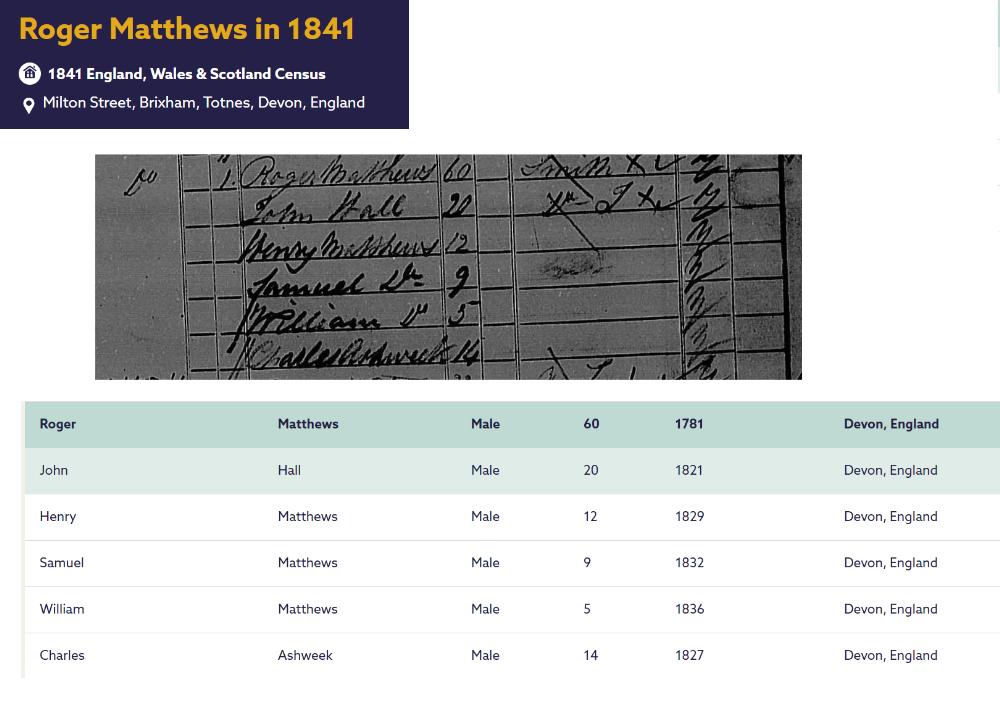 Roger Matthews in 1841
1841 England, Wales & Scotland Census
Milton Street, Brixham, Totnes, Devon, England
Do 1. Roger Matthews 60 Smith
John Hall 20
Henry Matthews 12
Samuel Do 9
William Do 5
Charles Ashweek 14
Roger Matthews Male 60 1781 Devon, England
John Hall Male 20 1821 Devon, England
Henry Matthews Male 12 1829 Devon, England
Samuel Matthews Male 9 1832 Devon, England
William Matthews Male 5 1836 Devon, England
Charles Ashweek Male 14 1827 Devon, England